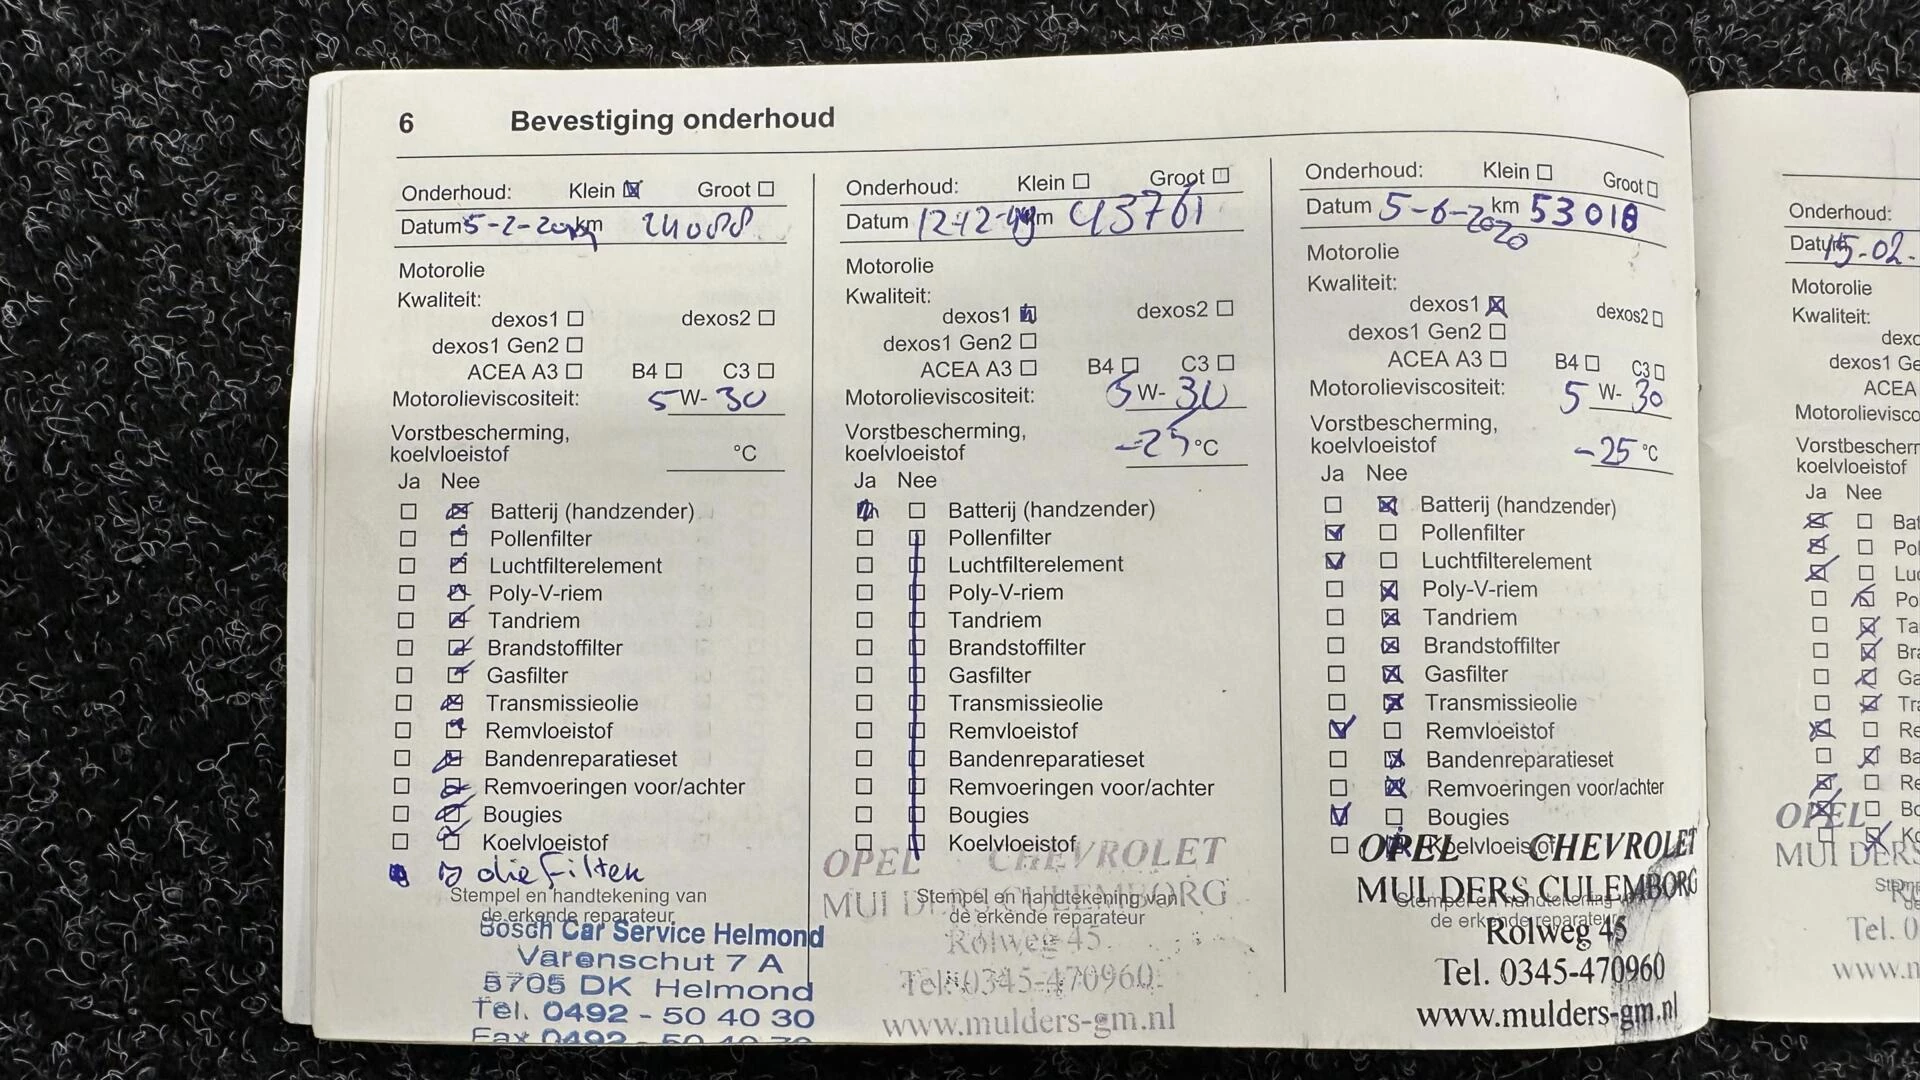 6 Bevestiging onderhoud
Onderhoud: Klein Groot
Datum 5-2-2019 km 24088
Motorolie
Kwaliteit:
dexos1 dexos2
dexos1 Gen2
ACEA A3 B4 C3
Motorolieviscositeit: 5 W- 30
Vorstbescherming,
koelvloeistof °C
Ja Nee
Batterij (handzender)
Pollenfilter
Luchtfilterelement
Poly-V-riem
Tandriem
Brandstoffilter
Gasfilter
Transmissieolie
Remvloeistof
Bandenreparatieset
Remvoeringen voor/achter
Bougies
Koelvloeistof
oliefilter
Stempel en handtekening van
de erkende reparateur
Bosch Car Service Helmond
Varenschut 7 A
5705 DK Helmond
Tel. 0492 - 50 40 30
Fax 0492 - 50 40 70
Onderhoud: Klein Groot
Datum 12-12-19 km 43761
Motorolie
Kwaliteit:
dexos1 dexos2
dexos1 Gen2
ACEA A3 B4 C3
Motorolieviscositeit: 5 W- 30
Vorstbescherming,
koelvloeistof -25 °C
Ja Nee
Batterij (handzender)
Pollenfilter
Luchtfilterelement
Poly-V-riem
Tandriem
Brandstoffilter
Gasfilter
Transmissieolie
Remvloeistof
Bandenreparatieset
Remvoeringen voor/achter
Bougies
Koelvloeistof
OPEL CHEVROLET
MULDERS CULEMBORG
Stempel en handtekening van
de erkende reparateur
Rolweg 45
Tel. 0345-470960
www.mulders-gm.nl
Onderhoud: Klein Groot
Datum 5-6-2020 km 53018
Motorolie
Kwaliteit:
dexos1 dexos2
dexos1 Gen2
ACEA A3 B4 C3
Motorolieviscositeit: 5 W- 30
Vorstbescherming,
koelvloeistof -25 °C
Ja Nee
Batterij (handzender)
Pollenfilter
Luchtfilterelement
Poly-V-riem
Tandriem
Brandstoffilter
Gasfilter
Transmissieolie
Remvloeistof
Bandenreparatieset
Remvoeringen voor/achter
Bougies
Koelvloeistof
OPEL CHEVROLET
MULDERS CULEMBORG
Stempel en handtekening van
de erkende reparateur
Rolweg 45
Tel. 0345-470960
www.mulders-gm.nl
Onderhoud:
Datum 15-02-
Motorolie
Kwaliteit:
dexo
dexos1 Ge
ACEA
Motorolievisco
Vorstbescherm
koelvloeistof
Ja Nee
Bat
Pol
Luc
Po
Ta
Bra
Ga
Tra
Re
Ba
Re
Bo
Ko
OPEL
MULDERS
Stemp
de
Tel. 0
www.m